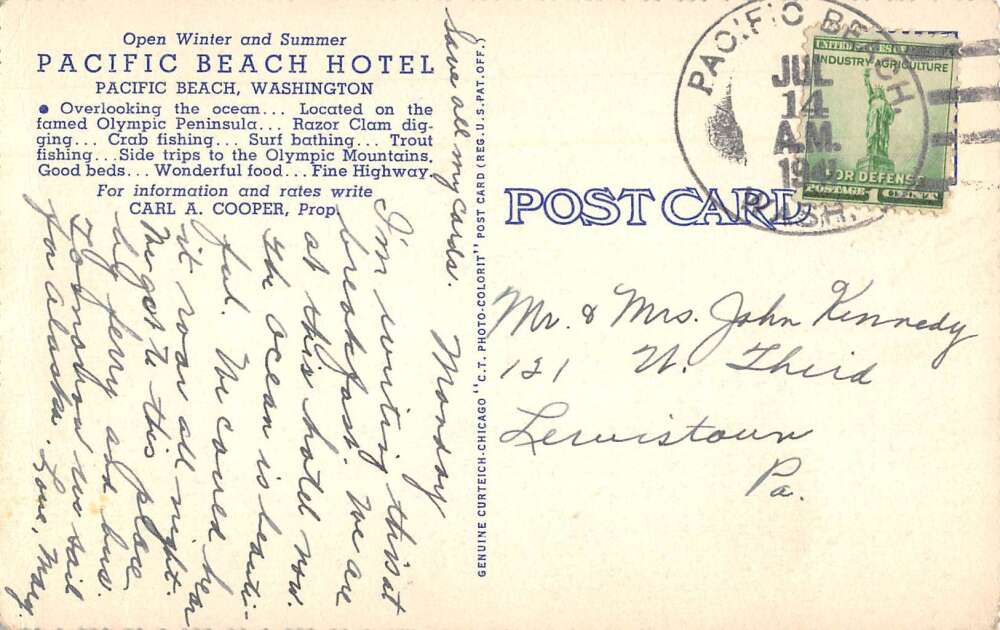 Open Winter and Summer
PACIFIC BEACH HOTEL
PACIFIC BEACH, WASHINGTON
● Overlooking the ocean... Located on the
famed Olympic Peninsula... Razor Clam dig-
ging... Crab fishing... Surf bathing... Trout
fishing... Side trips to the Olympic Mountains.
Good beds... Wonderful food... Fine Highway.
For information and rates write
CARL A. COOPER, Prop.
Save all my cards.
Monday
I'm writing this at
breakfast. We are
at this hotel now.
The ocean is beauti-
ful. We could hear
it roar all night.
We got to this place
by ferry and bus.
Tomorrow we sail
for Alaska. Love, Mary.
GENUINE CURTEICH-CHICAGO "C.T. PHOTO-COLORIT" POST CARD (REG. U.S. PAT. OFF.)
POST CARD
PACIFIC BEACH,
JUL
14
A.M.
WASH.
UNITED STATES OF
INDUSTRY AGRICULTURE
FOR DEFENSE
POSTAGE 1 CENT
Mr. & Mrs. John Kennedy
121 N. Third
Lewistown
Pa.